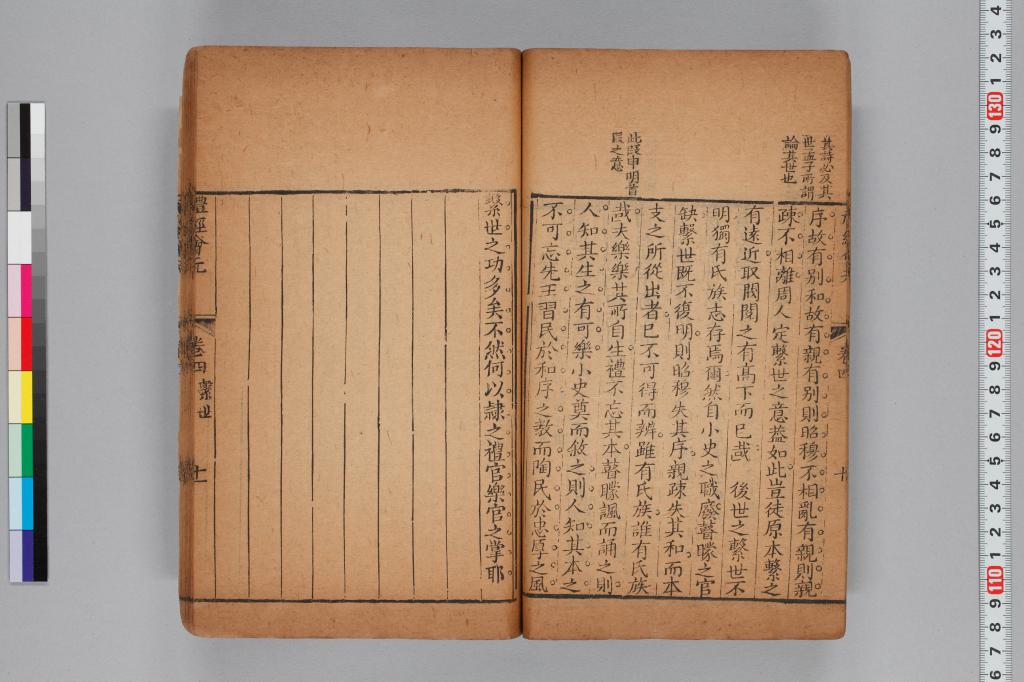 其詩必及其
世孟子所謂
論其世也
序故有別和故有親有別則昭穆不相亂有親則親
疎不相離周人定繫世之意葢如此豈徒原本繫之
有遠近取閥閱之有高下而已哉 後世之繫世不
明獨有氏族志存焉爾然自小史之職廢瞽矇之官
缺繫世既不復明則昭穆失其序親疎失其和而本
支之所從出者已不可得而辨雖有氏族誰有氏族
此段申明首
段之意
哉夫樂樂其所自生禮不忘其本瞽矇諷而誦之則
人知其生之有可樂小史奠而敘之則人知其本之
不可忘先王習民於和序之教而陶民於忠厚之風
卷四
十
繫世之功多矣不然何以隷之禮官樂官之掌耶
禮經會元
卷四 繫世
十一
4 3 2 1 130 9 8 7 6 5 4 3 2 1 120 9 8 7 6 5 4 3 2 1 110 9 8 7 6